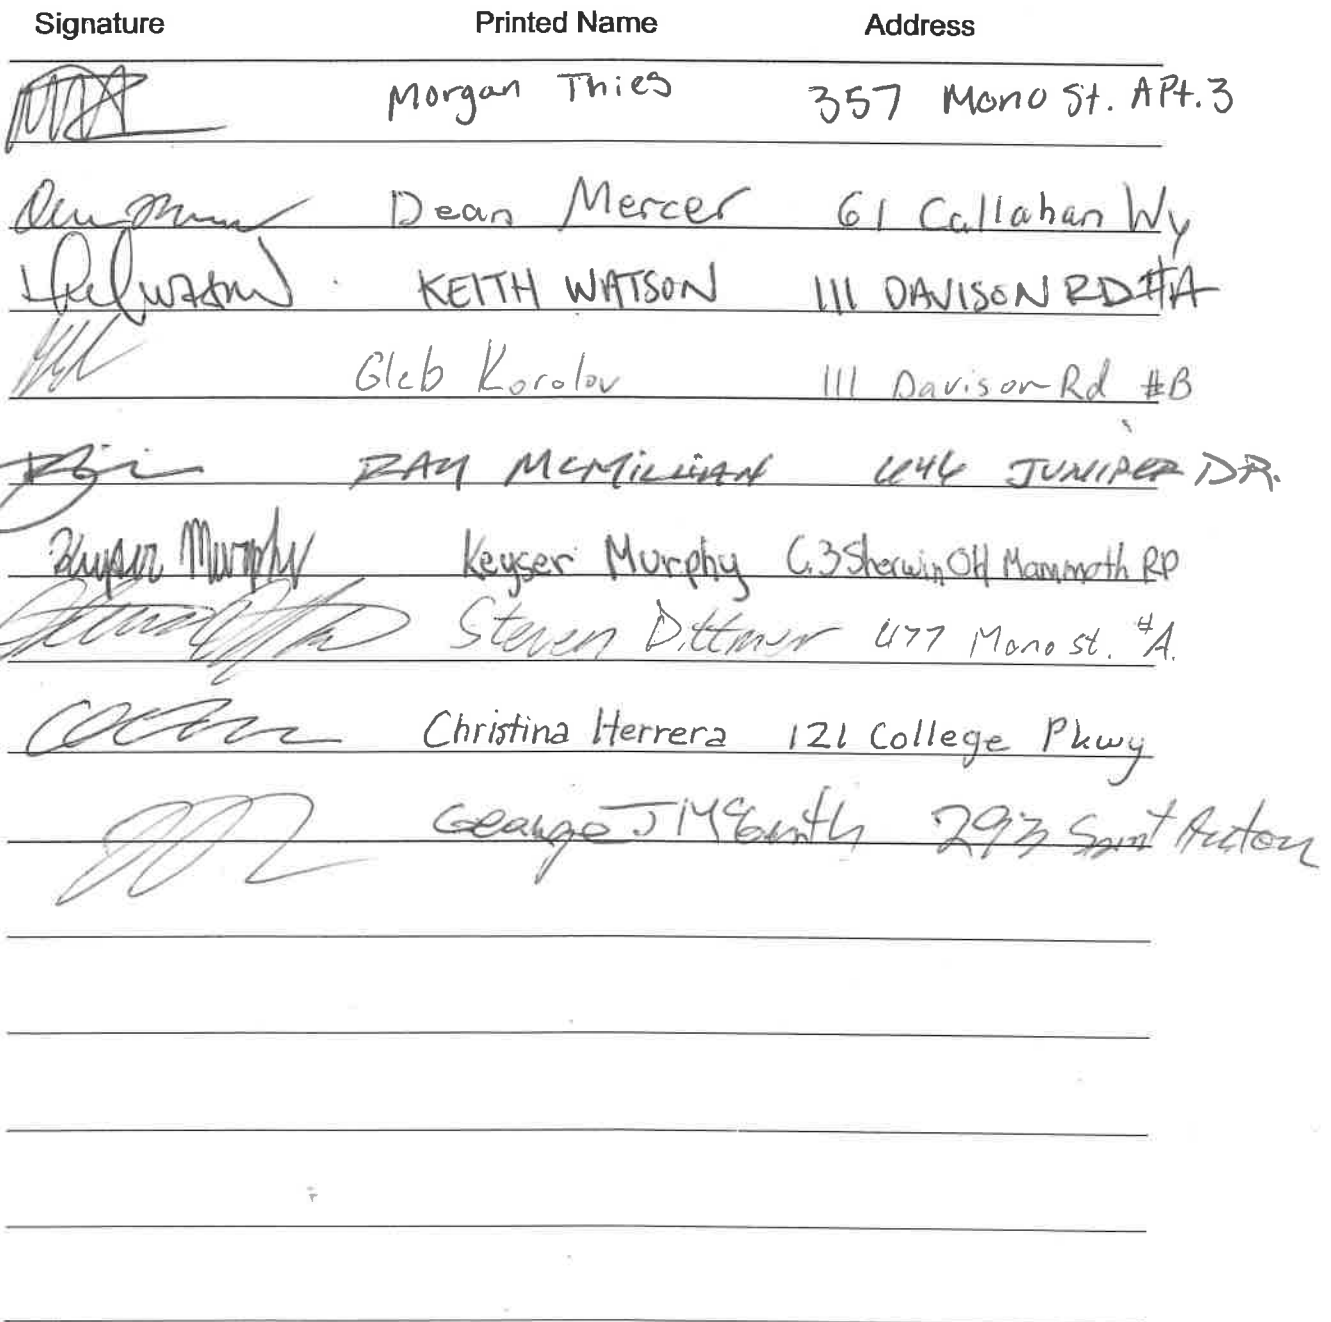 Signature Printed Name Address
Morgan Thies 357 Mono St. APt. 3
Dean Mercer 61 Callahan Wy
KEITH WATSON 111 DAVISON RD #A
Gleb Korolov 111 Davison Rd #B
RAY MCMILLIAN JUNIPER DR.
Keyser Murphy Keyser Murphy Sherwin Old Mammoth RD
Steven Dittmer 477 Mono st. #A.
Christina Herrera 121 College Pkwy
George J 293 Saint Anton